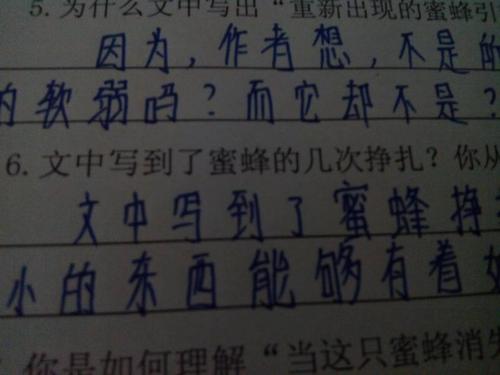 5. 为什么文中写出“重新出现的蜜蜂引
因为，作者想，不是的
的软弱吗？而它却不是？
6. 文中写到了蜜蜂的几次挣扎？你从
文中写到了蜜蜂挣
小的东西能够有着如
你是如何理解“当这只蜜蜂消失